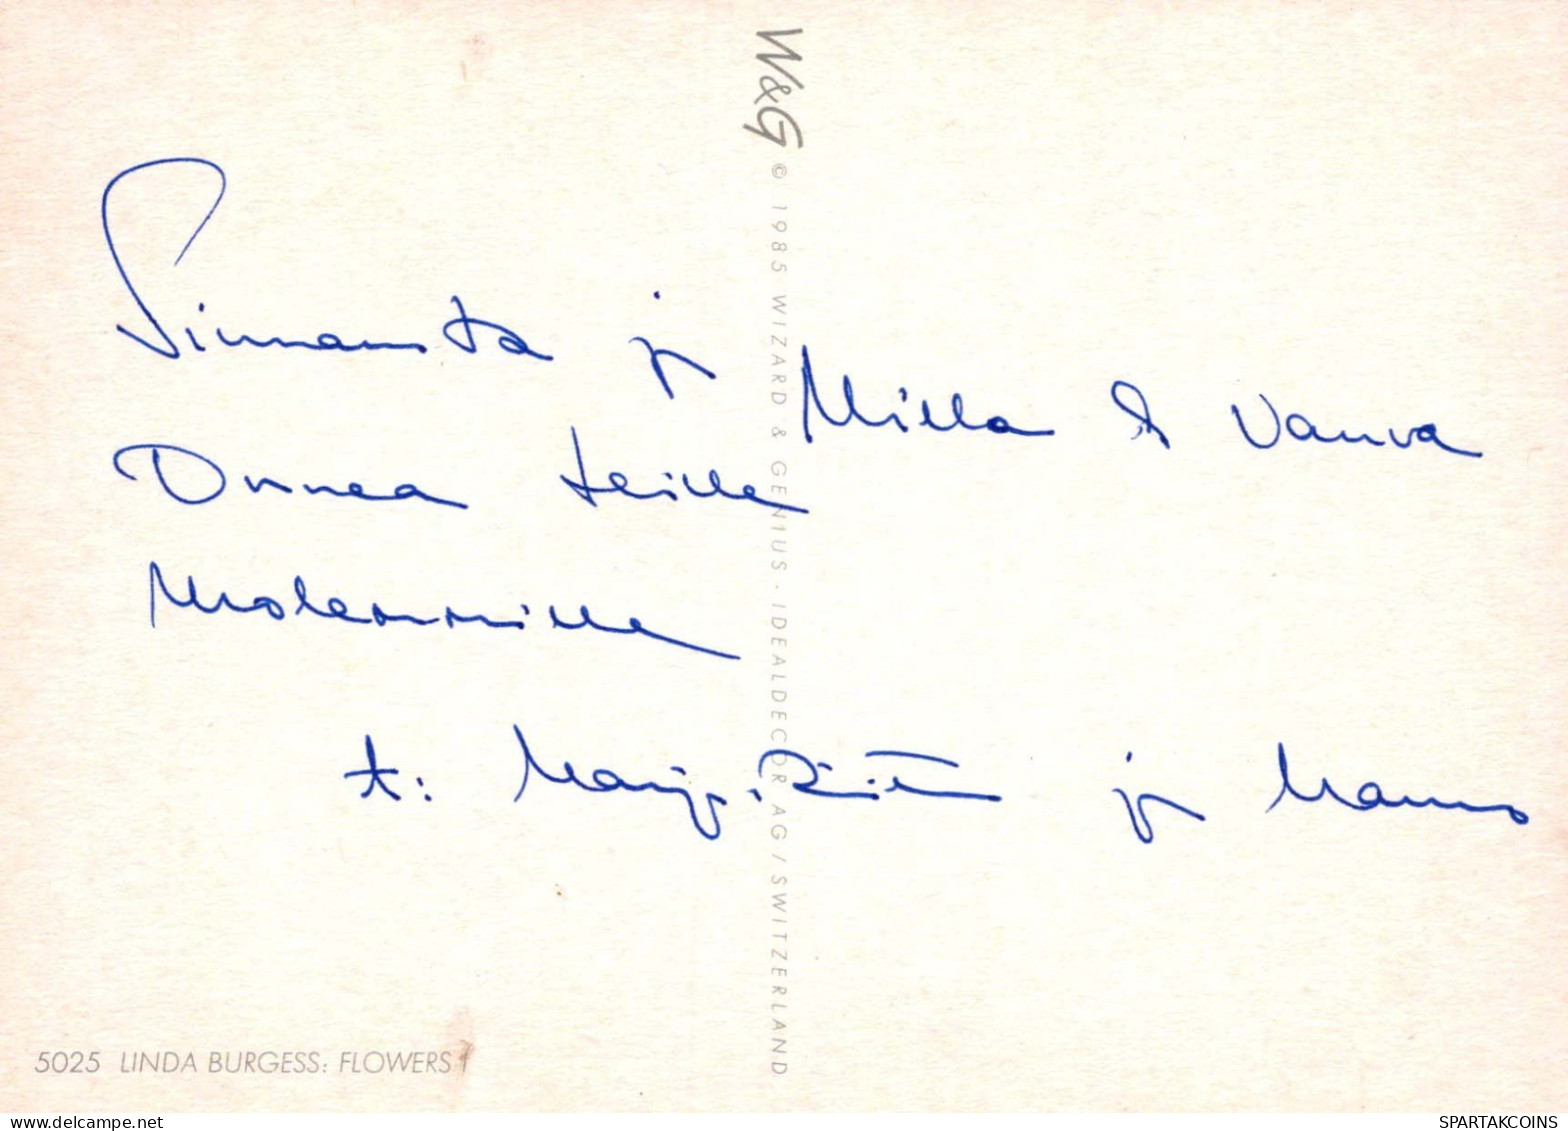 W&G © 1985 WIZARD & GENIUS · IDEALDECOR AG / SWITZERLAND
ja Milla &
Onnea teille
Molemmille
t: Marja-Riitta ja Hannu
5025 LINDA BURGESS: FLOWERS 1
SPARTAKCOINS
https://www.delcampe.net